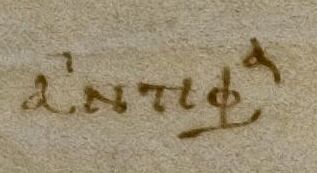 ἀντιφ^α